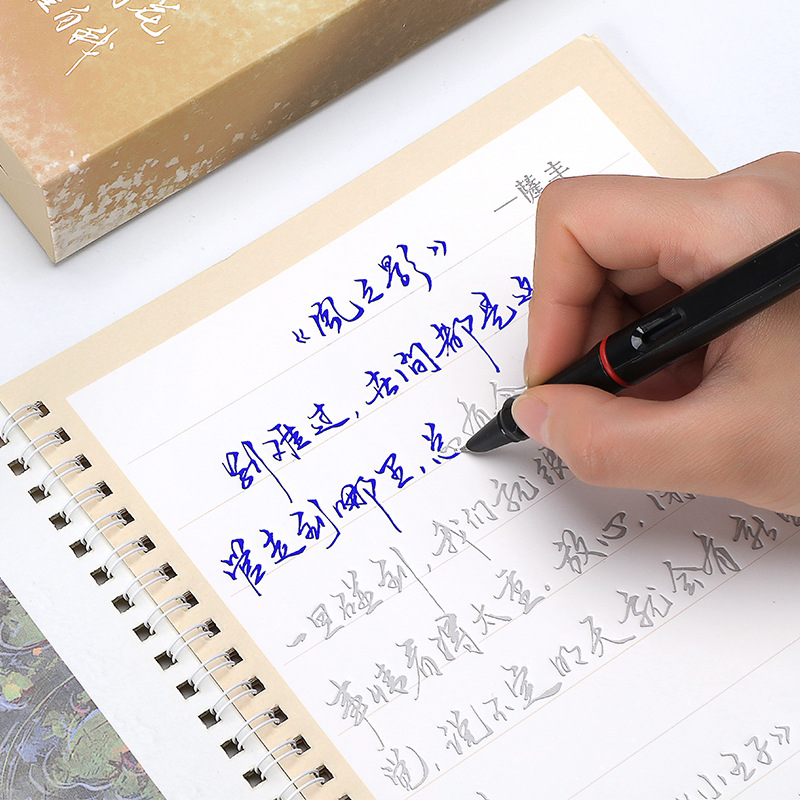 —薩丰
《風之影》
别难过，世间都是这
管走到哪里，总有会
一旦碰到，我们就很
事情看得太重，放心，
觉，说不定明天就会有新
小王子》